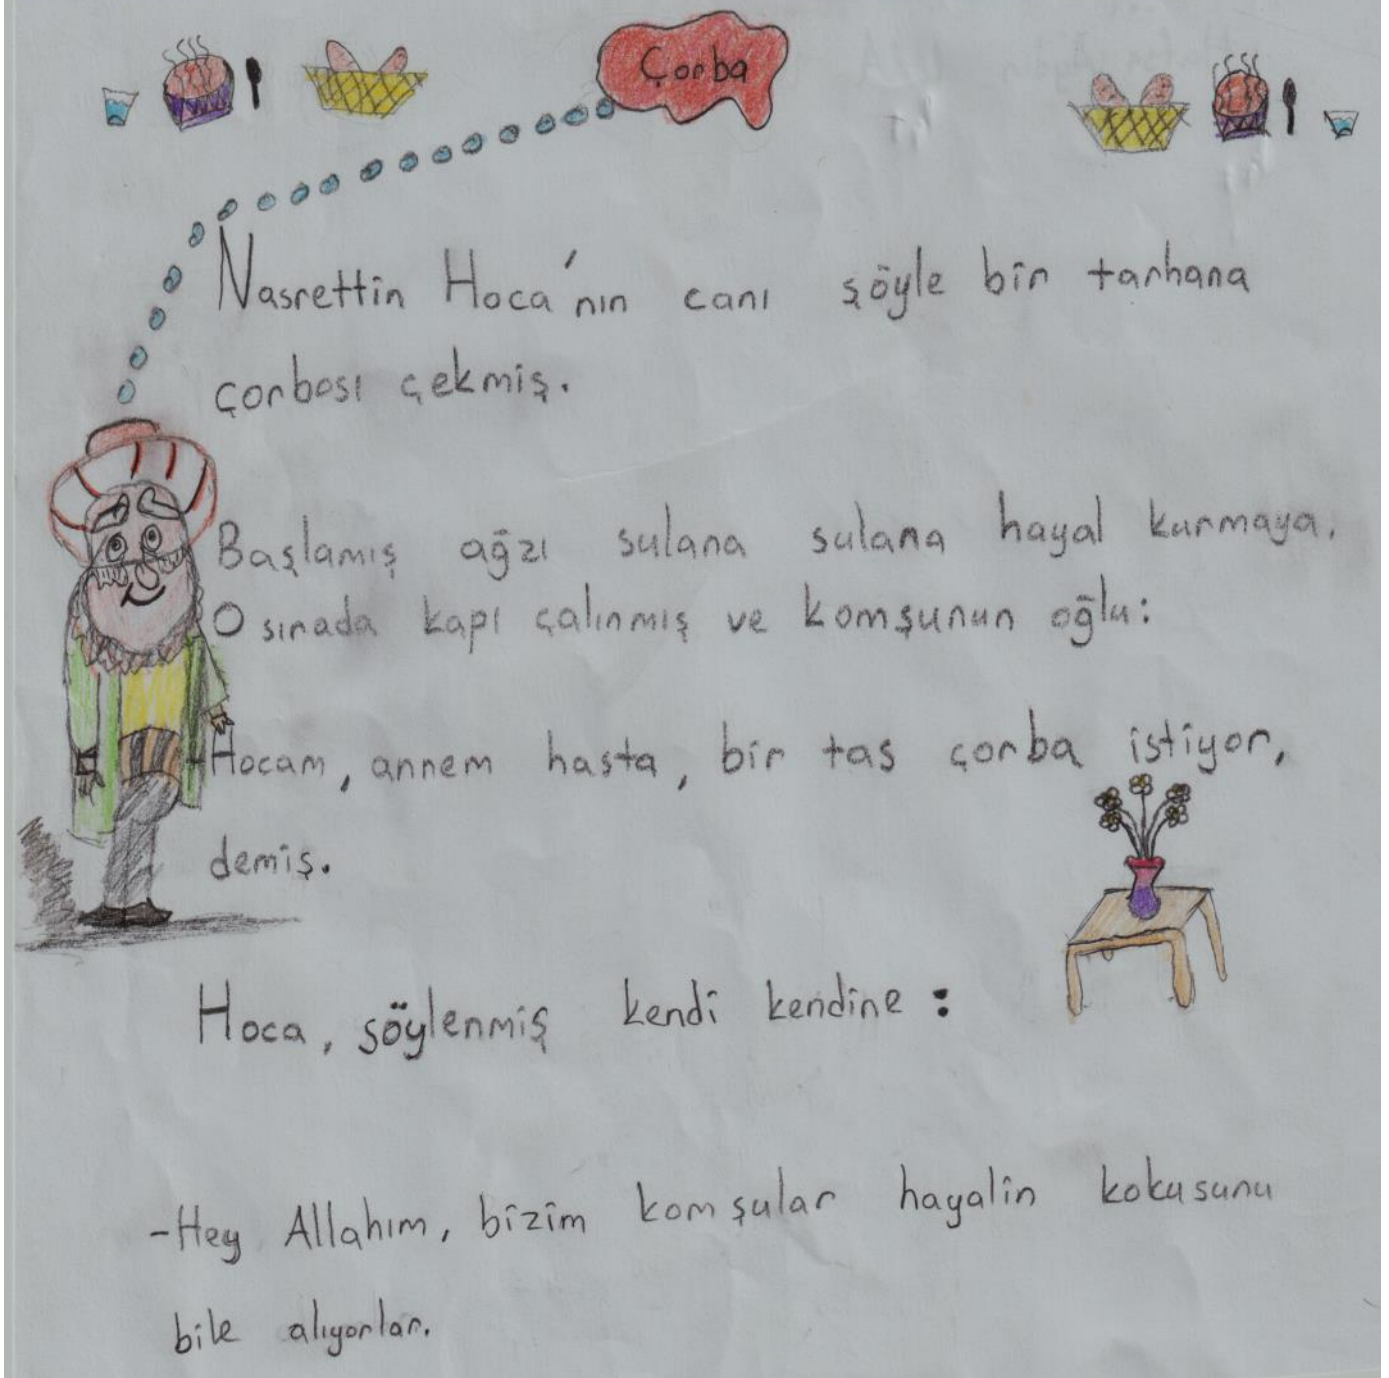 Çorba
Nasrettin Hoca'nın canı şöyle bir tarhana
çorbası çekmiş.
Başlamış ağzı sulana sulana hayal kurmaya.
O sırada kapı çalınmış ve komşunun oğlu:
-Hocam, annem hasta, bir tas çorba istiyor,
demiş.
Hoca, söylenmiş kendi kendine:
-Hey Allahım, bizim komşular hayalin kokusunu
bile alıyorlar.